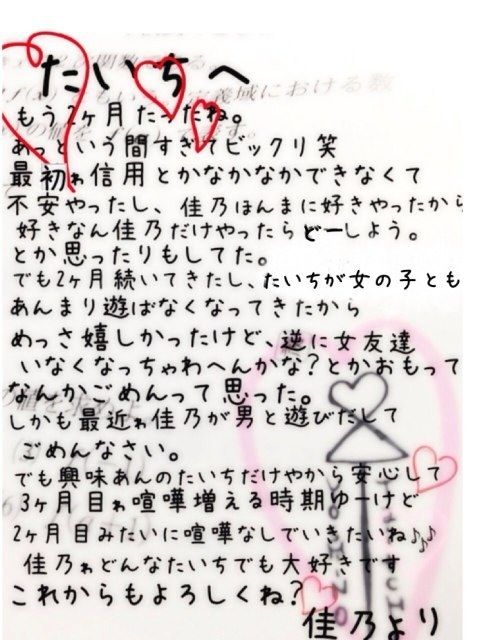 たいちへ
もう2ヶ月たったね。
あっという間すぎてビックリ笑
最初ゎ信用とかなかなかできなくて
不安やったし、佳乃ほんまに好きやったから
好きなん佳乃だけやったらどーしよう。
とか思ったりもしてた。
でも2ヶ月続いてきたし、たいちが女の子とも
あんまり遊ばなくなってきたから
めっさ嬉しかったけど、逆に女友達
いなくなっちゃわへんかな?とかおもって
なんかごめんって思った。
しかも最近ゎ佳乃が男と遊びだして
ごめんなさい。
でも興味あんのたいちだけやから安心して
3ヶ月目ゎ喧嘩増える時期ゆーけど
2ヶ月目みたいに喧嘩なしでいきたいね♪♪
佳乃ゎどんなたいちでも大好きです
これからもよろしくね?
佳乃より